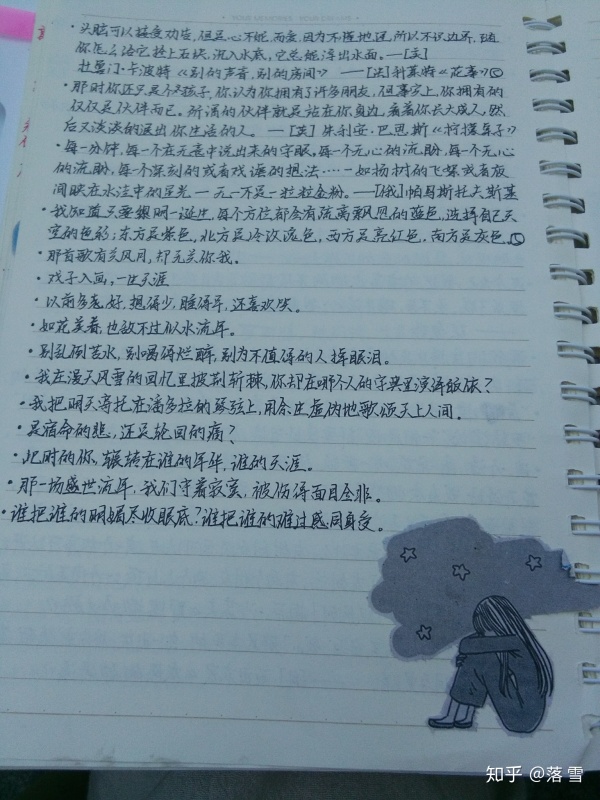 ·头脑可以接受劝告，但是心不能，而爱，因为不懂地理，所以不识边界，随
你怎么给它拴上石块，沉入水底，它总能浮出水面。—[美]
杜鲁门·卡波特《别的声音，别的房间》 —[法]科莱特《花事》
·那时你还只是个孩子，你认为你拥有了许多朋友，但事实上，你拥有的
仅仅是伙伴而已。所谓的伙伴就是站在你身边，看着你长大成人，然
后又淡淡的退出你生活的人。—[英]朱利安·巴恩斯《柠檬桌子》
·每一分钟，每一个在无意中说出来的字眼，每一个无心的流盼，每一个
的流盼，每一个深刻的或者戏谑的想法……一如杨树的飞絮或者夜
间映在水洼中的星光—无一不是一粒粒金粉。—[俄]帕乌斯托夫斯基
·我知道只要黎明一诞生，每个方位都会有疏离飘忽的蓝色，选择自己天
空的色彩；东方是紫色，北方是冷汝流色，西方是亮红色，南方是灰色。
·那首歌有关风月，却无关你我。
·戏子入画，一生天涯
·以前多艺好，想得少，睡得早，还喜欢笑。
·如花美眷，也敌不过似水流年。
·别乱倒苦水，别喝得烂醉，别为不值得的人挥眼泪。
·我在漫天风雪的回忆里披荆斩棘，你却在哪个人的字典里演绎皈依？
·我把明天寄托在潘多拉的琴弦上，用余生虚伪地歌颂天上人间。
·是宿命的悲，还是轮回的痛？
·此时的你，辗转在谁的年华，谁的天涯。
·那一场盛世流年，我们守着寂寞，被伤得面目全非。
·谁把谁的明媚尽收眼底？谁把谁的难过感同身受。
知乎 @落雪